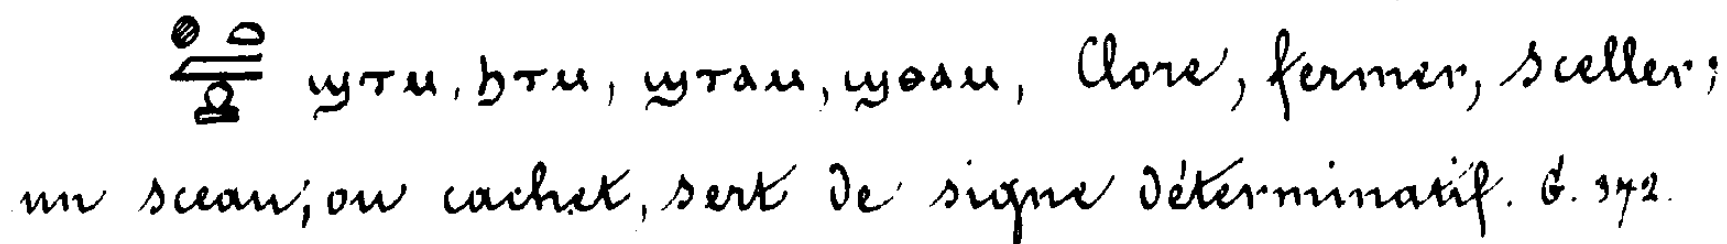 𓐍𓏏𓅓 ϣⲧⲙ, ϧⲧⲙ, ϣⲧⲁⲙ, ϣⲑⲁⲙ, Clore, fermer, sceller;
un sceau, ou cachet, sert de signe déterminatif. G. 372.